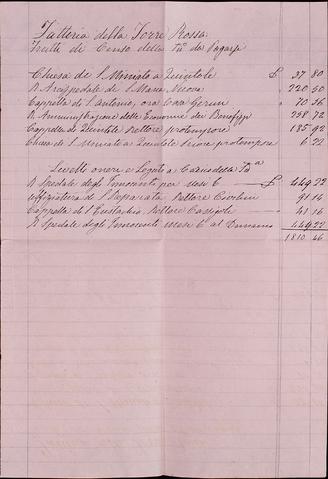 Fattoria della Torre Rossa
Frutti di Censo della Tta da Pagarsi
Chiesa di S. Miniato a Quintole £ 37 80
R. Arcispedale di S. Maria Nuova " 220 50
Cappella di S. Antonio, ora Cav. Gerini " 70 56
R. Amministrazione delle Economie dei Benefizi 258 72
Cappella di Quintole Rettore pro tempore " 185 92
Chiesa di S. Miniato a Quintole Priore pro tempore " 6 22
Livelli oneri e Legati a Carico della Tta
R. Spedale degli Innocenti per mesi 6 — £ 449 22
Uffiziatura di S. Reparata Rettore 91 14
Cappella di S. Eustachio Rettore Casigoli — 41 16
R. Spedale degli Innocenti mesi 6 al 449 22
1810 46